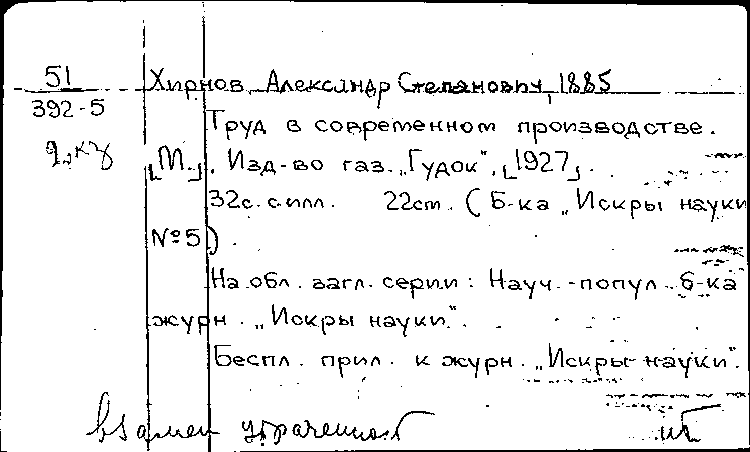 51
392-5
Хирнов, Александр Степанович, 1885
Труд в современном производстве.
[М.]. Изд-во газ. „Гудок“, [1927].
32с. с илл. 22см. (Б-ка „Искры науки
№5).
На обл. загл. серии: Науч.-попул. б-ка
журн. „Искры науки“.
Беспл. прил. к журн. „Искры науки“.
взамен утраченной